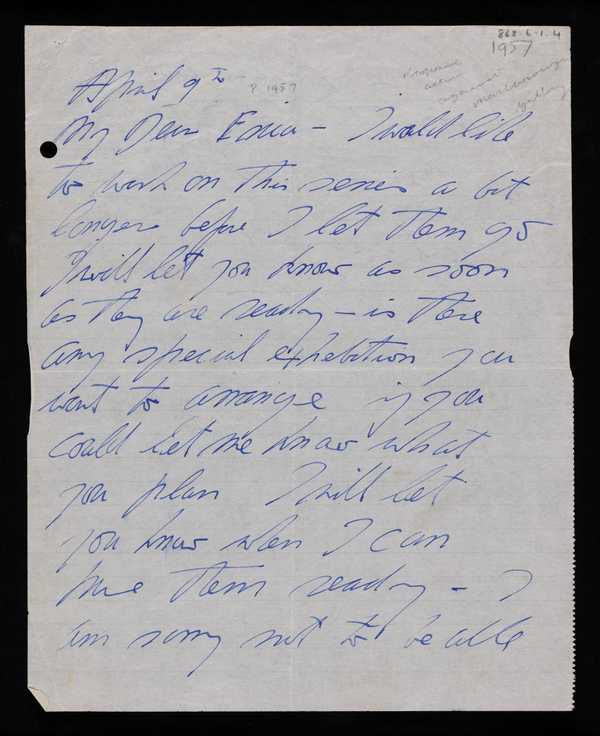 868.6.1.4
1957
April 9th
? 1957
against
Marlborough
My Dear Erica - I would like
to work on this series a bit
longer before I let them go
I will let you know as soon
as they are ready - is there
any special exhebition you
want to arrange if you
could let me know what
you plan I will let
you know when I can
have them ready - I
am sorry not to be able